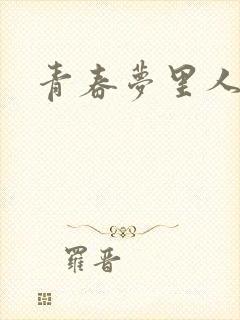 青春夢里人
羅晋